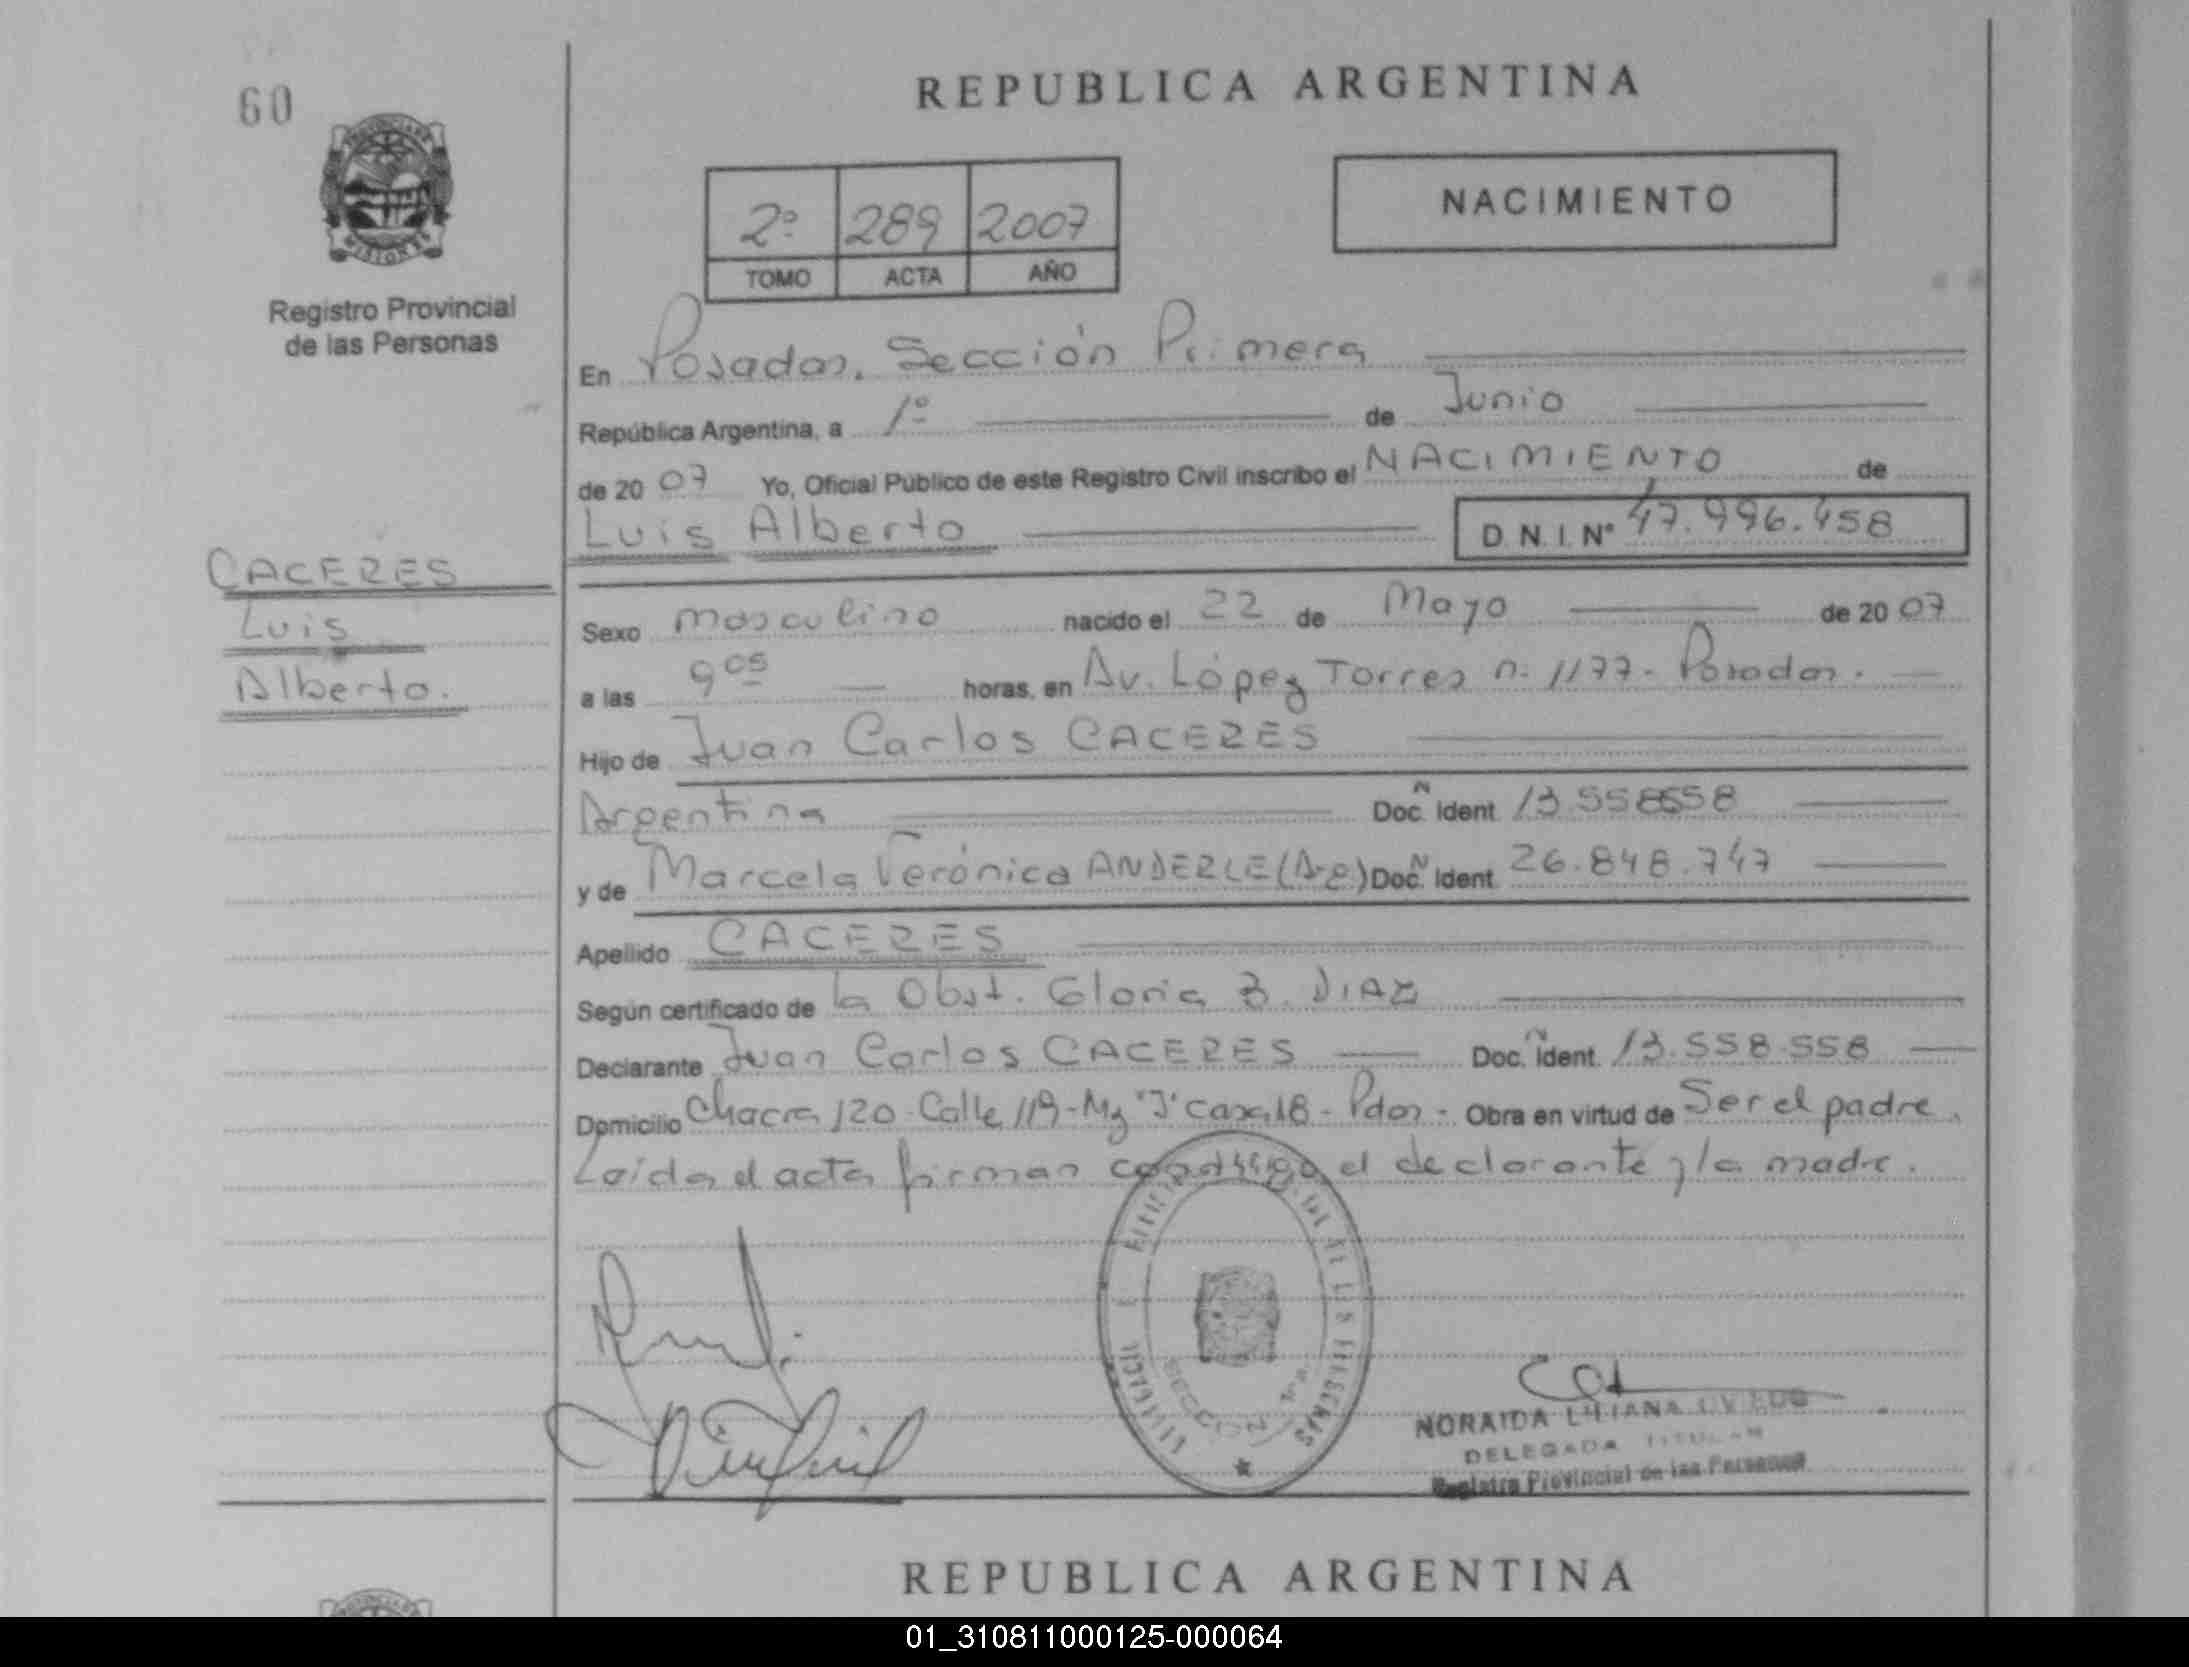 60
PROVINCIA DE
MISIONES
Registro Provincial
de las Personas
CACERES
Luis
Alberto.
REPUBLICA ARGENTINA
2º 289 2007
TOMO ACTA AÑO
NACIMIENTO
En Posadas, Sección Primera
República Argentina, a 1º de Junio
de 2007 Yo, Oficial Público de este Registro Civil inscribo el NACIMIENTO de
Luis Alberto D.N.I. Nº 47.996.458
Sexo masculino nacido el 22 de Mayo de 2007
a las 9 05 horas, en Av. López Torres n. 1177. Posadas.
Hijo de Juan Carlos CACERES
Argentina Doc. Ñ Ident. 13.558558
y de Marcela Verónica ANDERLE (Arg) Doc. Ñ Ident. 26.848.747
Apellido CACERES
Según certificado de la Obst. Gloria B. DIAZ
Declarante Juan Carlos CACERES Doc. Ñ Ident. 13.558.558
Domicilio Chacra 120 - Calle 119 - Mz "J" casa 18 - Pdas - Obra en virtud de Ser el padre.
Leída el acta firman conmigo el declarante y la madre.
SECCION 1ra.
NORAIDA LILIANA OVIEDO
DELEGADA TITULAR
Registro Provincial de las Personas
REPUBLICA ARGENTINA
01_310811000125-000064